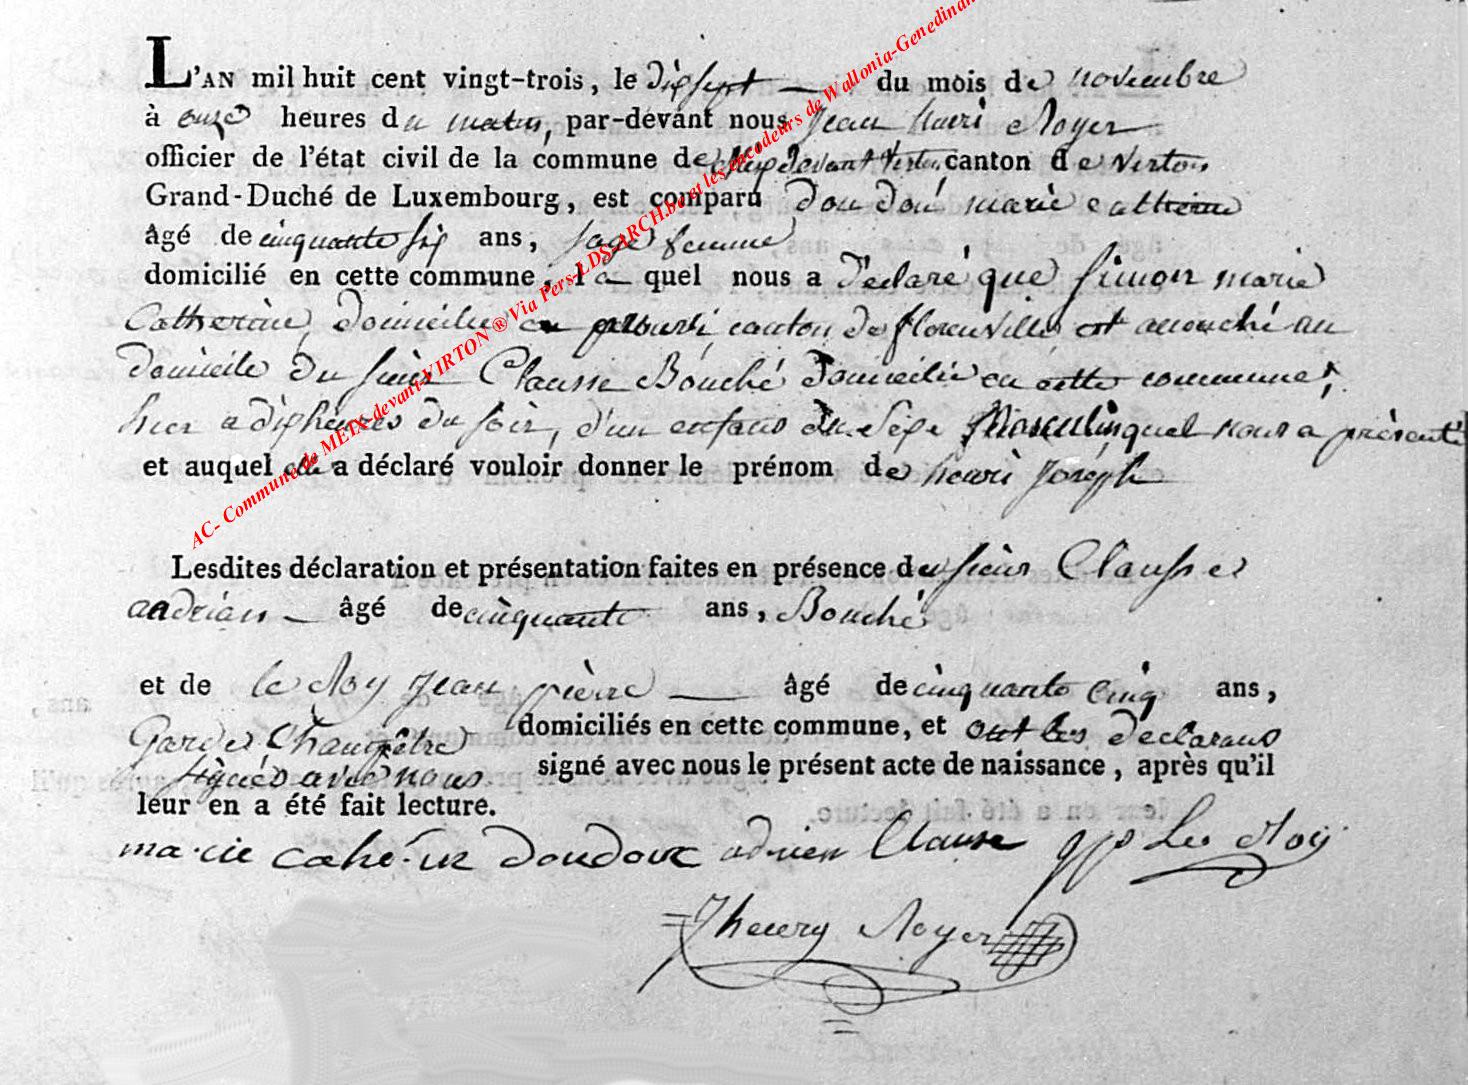 L'AN mil huit cent vingt-trois, le dix sept du mois de novembre
à onze heures du matin, par-devant nous Jean henri Royer
officier de l'état civil de la commune de Meix devant Virton canton de Virton
Grand-Duché de Luxembourg, est comparu doudou marie catherine
âgé de cinquante six ans, sage femme
domicilié en cette commune, la quel nous a déclaré que Simon marie
Catherine, domicilié en canton de florenville, est accouché au
domicile du sieur Clausse Bouché domicilié en cette commune,
hier a dix heures du soir, d'un enfans du Sexe Masculin quel nous a présenté
et auquel elle a déclaré vouloir donner le prénom de henri joseph
Lesdites déclaration et présentation faites en présence de sieur Clausse
andrian âgé de cinquante ans, Bouché
et de le Roy jean pierre âgé de cinquante cinq ans,
Garde Champêtre domiciliés en cette commune, et ont les declarans
signés avec nous signé avec nous le présent acte de naissance, après qu'il
leur en a été fait lecture.
ma rie cahé rin doudoux adrien Clausse jp Le Roy
Jhenry Royer
AC- Commune de MEIX-devant-VIRTON ® Via Pers-LDS-ARCH.be et les encodeurs de Wallonia-Genedinan